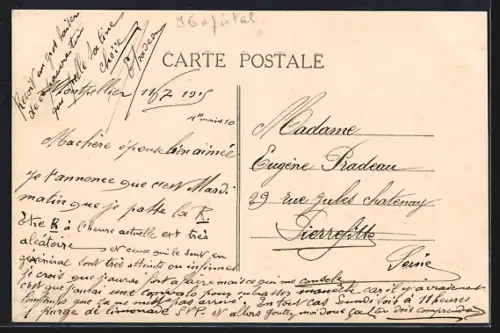 Hopital
CARTE POSTALE
Reçoit un gros baiser
de ton
que appelle sa tine
chérie
EPradeau
Montpellier 11/7 1915
4 heures 10
Ma chère épouse bien aimée
Je t'annonce que c'est Mardi
matin que je passe la R.
Etre R à l'heure actuelle est très
aléatoire et ceux qui le sont en
général sont très atteints ou infirmes
je crois que j'aurai fort à faire mais ce qui me console
c'est que j'aurai une convalo pour embrasser car il y a vraiment
longtemps que ça ne m'est pas arrivé. En tout cas lundi soir à 11 heures
purge de limonade SVP. et alors goutez moi donc ça. Tu dois comprendre
Madame
Eugène Pradeau
29 rue Jules Chatenay
Pierrefitte
Seine